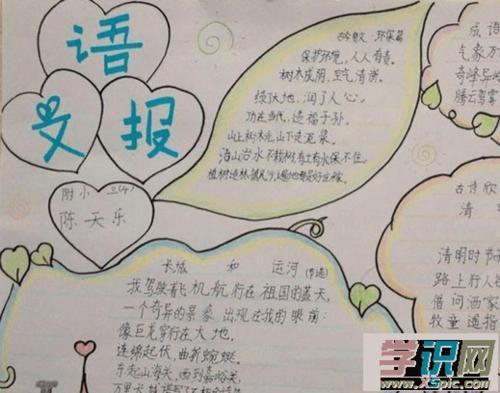 语
文报
附小 三(4)
陈天乐
环保篇
保护环境，人人有责。
树木成阴，空气清新。
绿大地，润了人心。
功在当代，造福子孙。
山上树木光，山下走泥浆。
治山治水不栽树，有土有水保不住。
植树造林
长城 和 运河(节选)
我驾驶着飞机航行在祖国的蓝天，
一个奇异的景象出现在我的眼前：
像巨龙穿行在大地，
连绵起伏，曲折蜿蜒。
东起山海关，西到嘉峪关，
万里长城
成语
气象万
奇峰异
腾云驾雾
古诗欣
清
清明时节
路上行人
借问酒家
牧童遥指
学识网
www.xspic.com